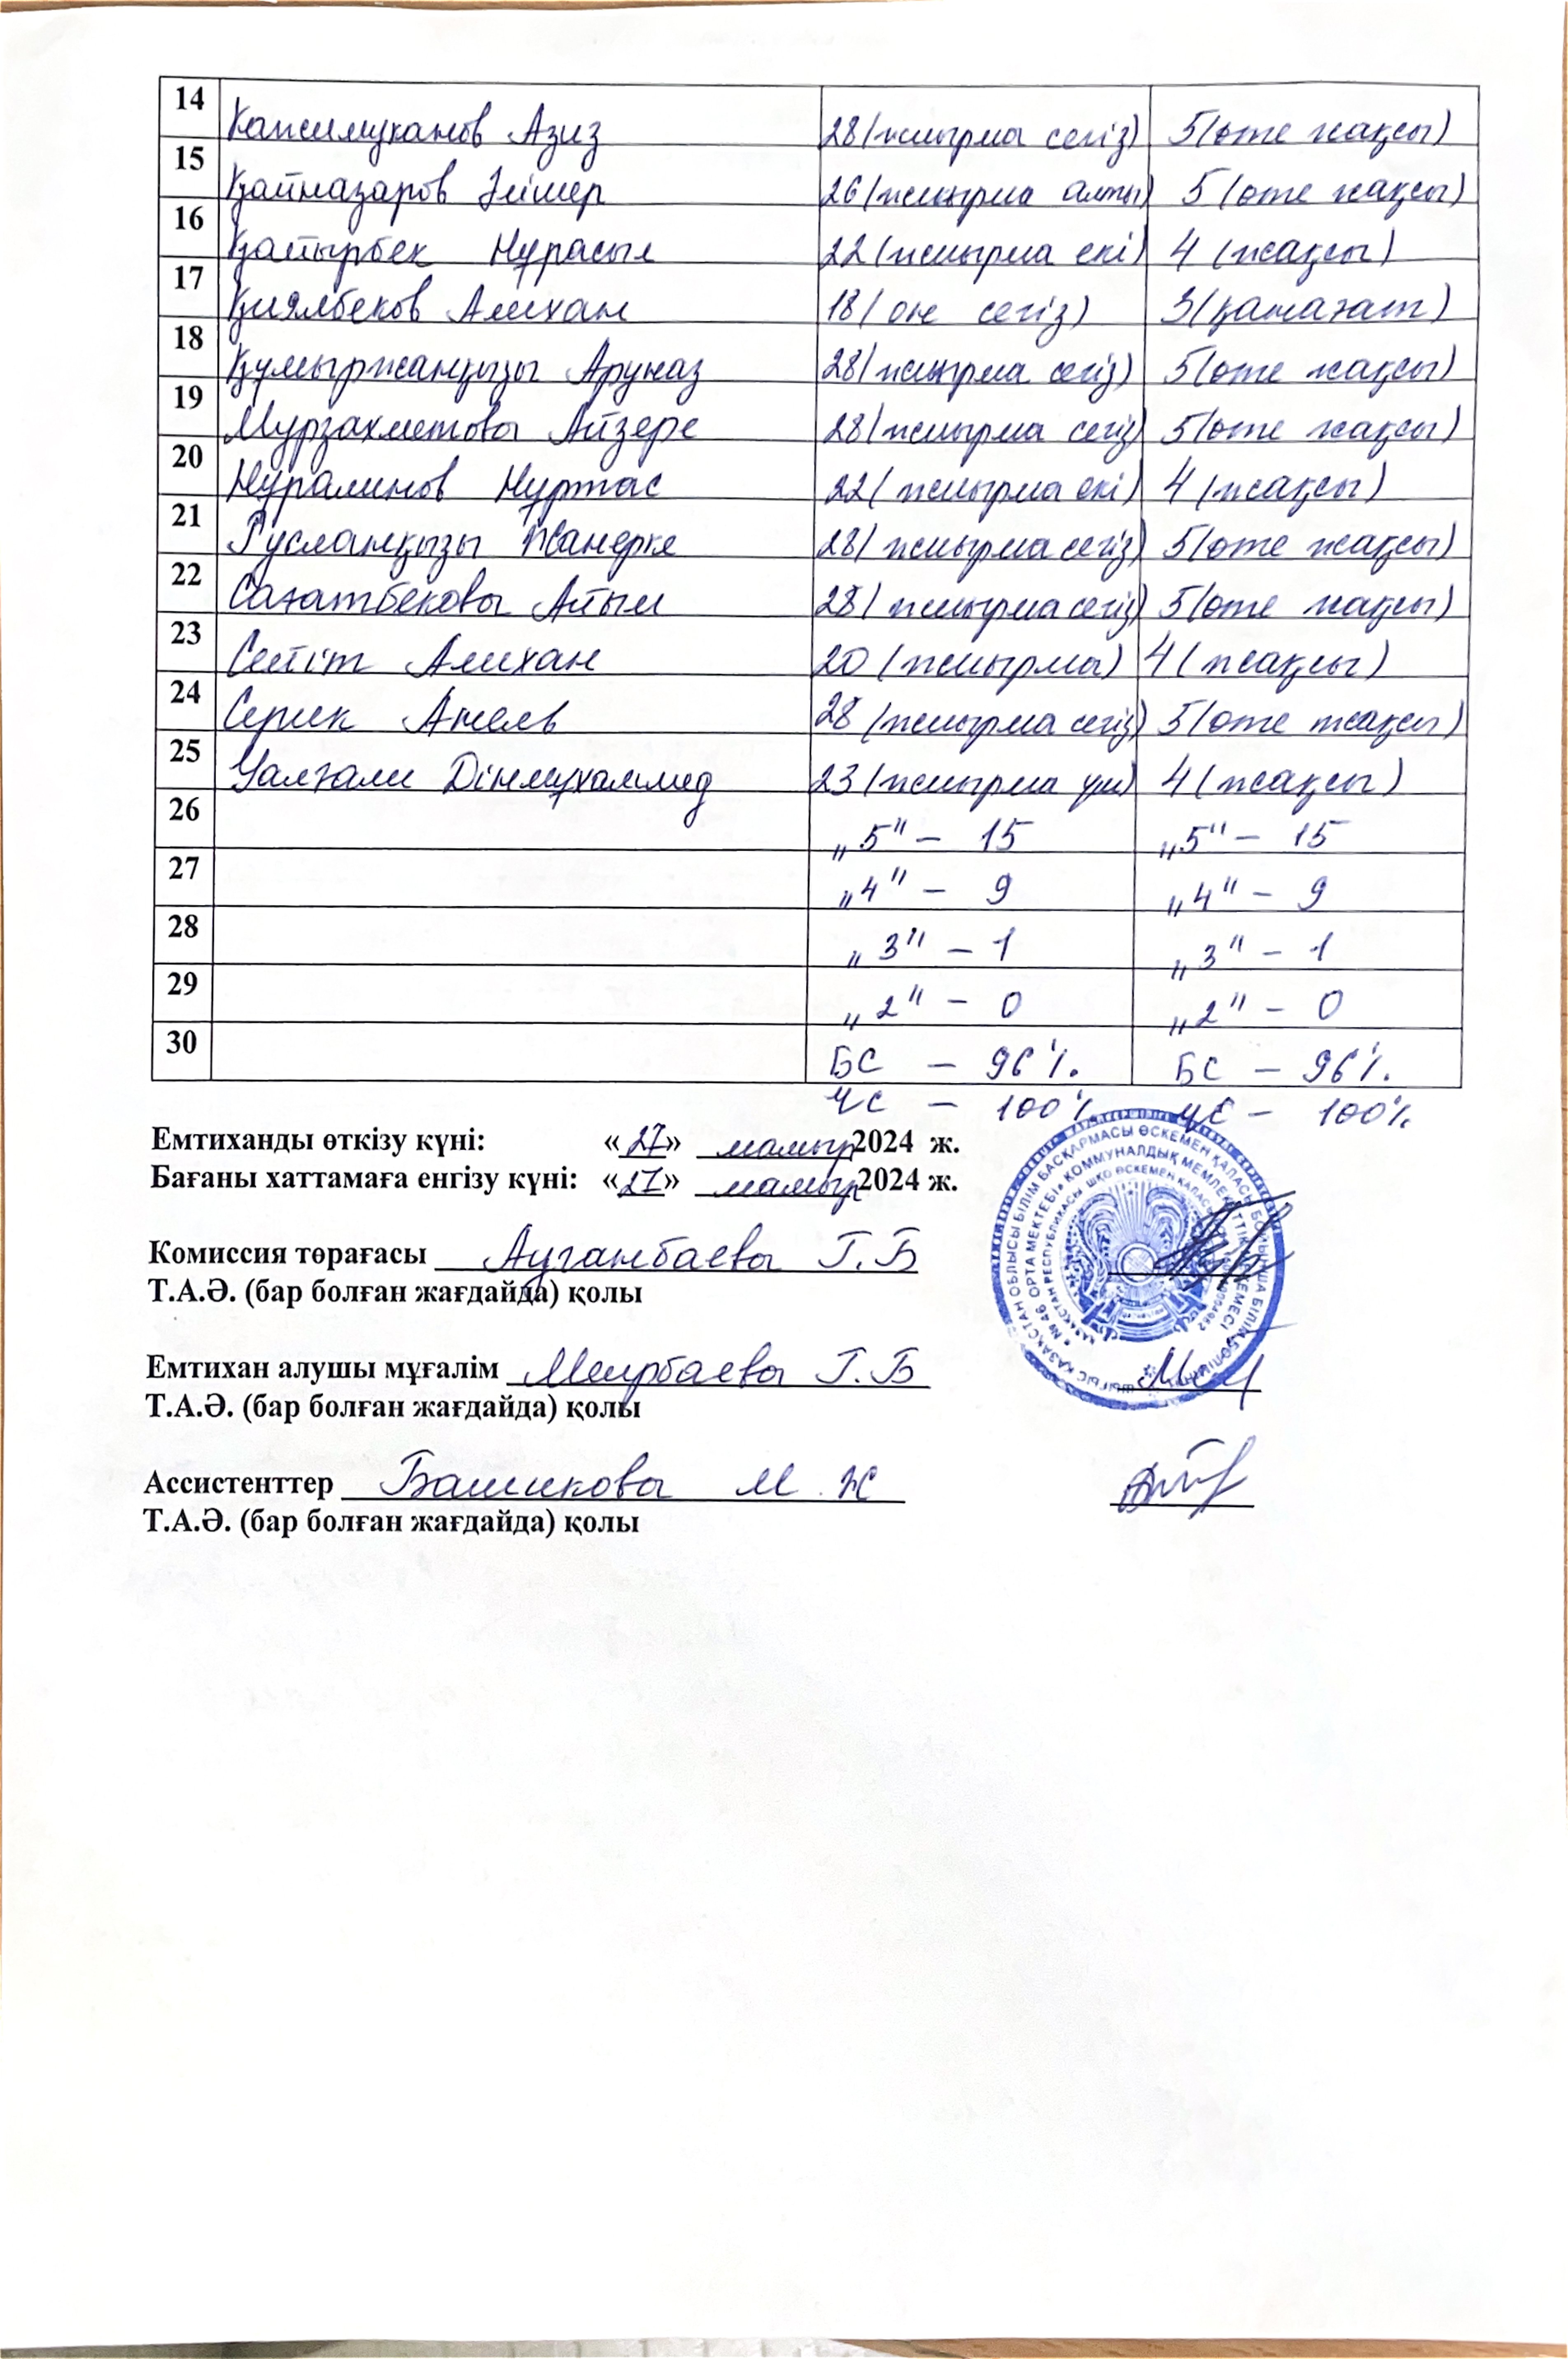 14 Капсимуканов Азиз 28 (жиырма сегіз) 5 (өте жақсы)
15 Қайназаров Әлішер 26 (жиырма алты) 5 (өте жақсы)
16 Қайырбек Нұрасыл 22 (жиырма екі) 4 (жақсы)
17 Қиялбеков Алихан 18 (он сегіз) 3 (қанағат)
18 Құмыржанқызы Аружаз 28 (жиырма сегіз) 5 (өте жақсы)
19 Мурзахметова Айзере 28 (жиырма сегіз) 5 (өте жақсы)
20 Нуралинов Нұртас 22 (жиырма екі) 4 (жақсы)
21 Русланқызы Жанерке 28 (жиырма сегіз) 5 (өте жақсы)
22 Сағатбекова Айым 28 (жиырма сегіз) 5 (өте жақсы)
23 Сейіт Алихан 20 (жиырма) 4 (жақсы)
24 Серик Анель 28 (жиырма сегіз) 5 (өте жақсы)
25 Уалғали Дінмұхаммед 23 (жиырма үш) 4 (жақсы)
26 „5" – 15 „5" – 15
27 „4" – 9 „4" – 9
28 „3" – 1 „3" – 1
29 „2" – 0 „2" – 0
30 БС – 96% БС – 96%
ҮС – 100% ҮС – 100%
Емтиханды өткізу күні: «27» мамыр 2024 ж.
Бағаны хаттамаға енгізу күні: «27» мамыр 2024 ж.
Комиссия төрағасы Ауганбаева Г.Б
Т.А.Ә. (бар болған жағдайда) қолы
Емтихан алушы мұғалім Меирбаева Г.Б
Т.А.Ә. (бар болған жағдайда) қолы
Ассистенттер Башикова М.Ж
Т.А.Ә. (бар болған жағдайда) қолы
ШЫҒЫС ҚАЗАҚСТАН ОБЛЫСЫ БІЛІМ БАСҚАРМАСЫ ӨСКЕМЕН ҚАЛАСЫ БОЙЫНША БІЛІМ БӨЛІМІНІҢ
№ 46 ОРТА МЕКТЕБІ» КОММУНАЛДЫҚ МЕМЛЕКЕТТІК МЕКЕМЕСІ
ҚАЗАҚСТАН РЕСПУБЛИКАСЫ ШҚО ӨСКЕМЕН ҚАЛАСЫ